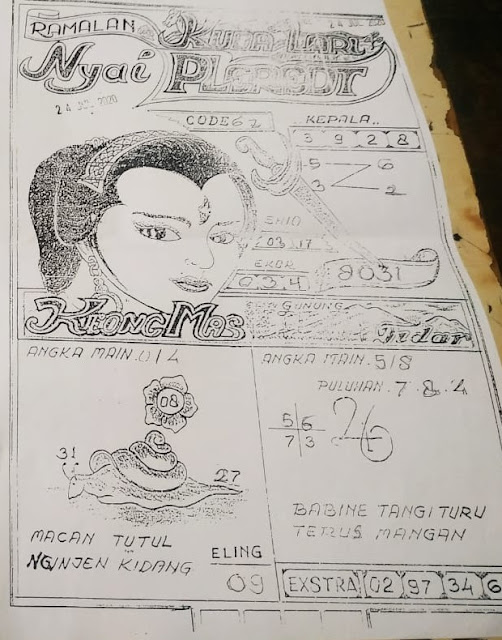 RAMALAN KUDA LARI
24 JUL 2020
Nyai PLEREDT
24 JUL 2020
CODE 6 2
KEPALA
3 9 2 8
5 6
3 2
03 17
EKOR
0 3 4
8031
KEONG MAS
GUNUNG
Tidar
ANGKA MAIN. 0/4
08
31
27
MACAN TUTUL
NGINJEN KIDANG
ELING
09
ANGKA MAIN. 5/8
PULUHAN. 7. 8. 4
5 6
7 3
26
BABINE TANGI TURU
TERUS MANGAN
EXSTRA 02 97 34 6